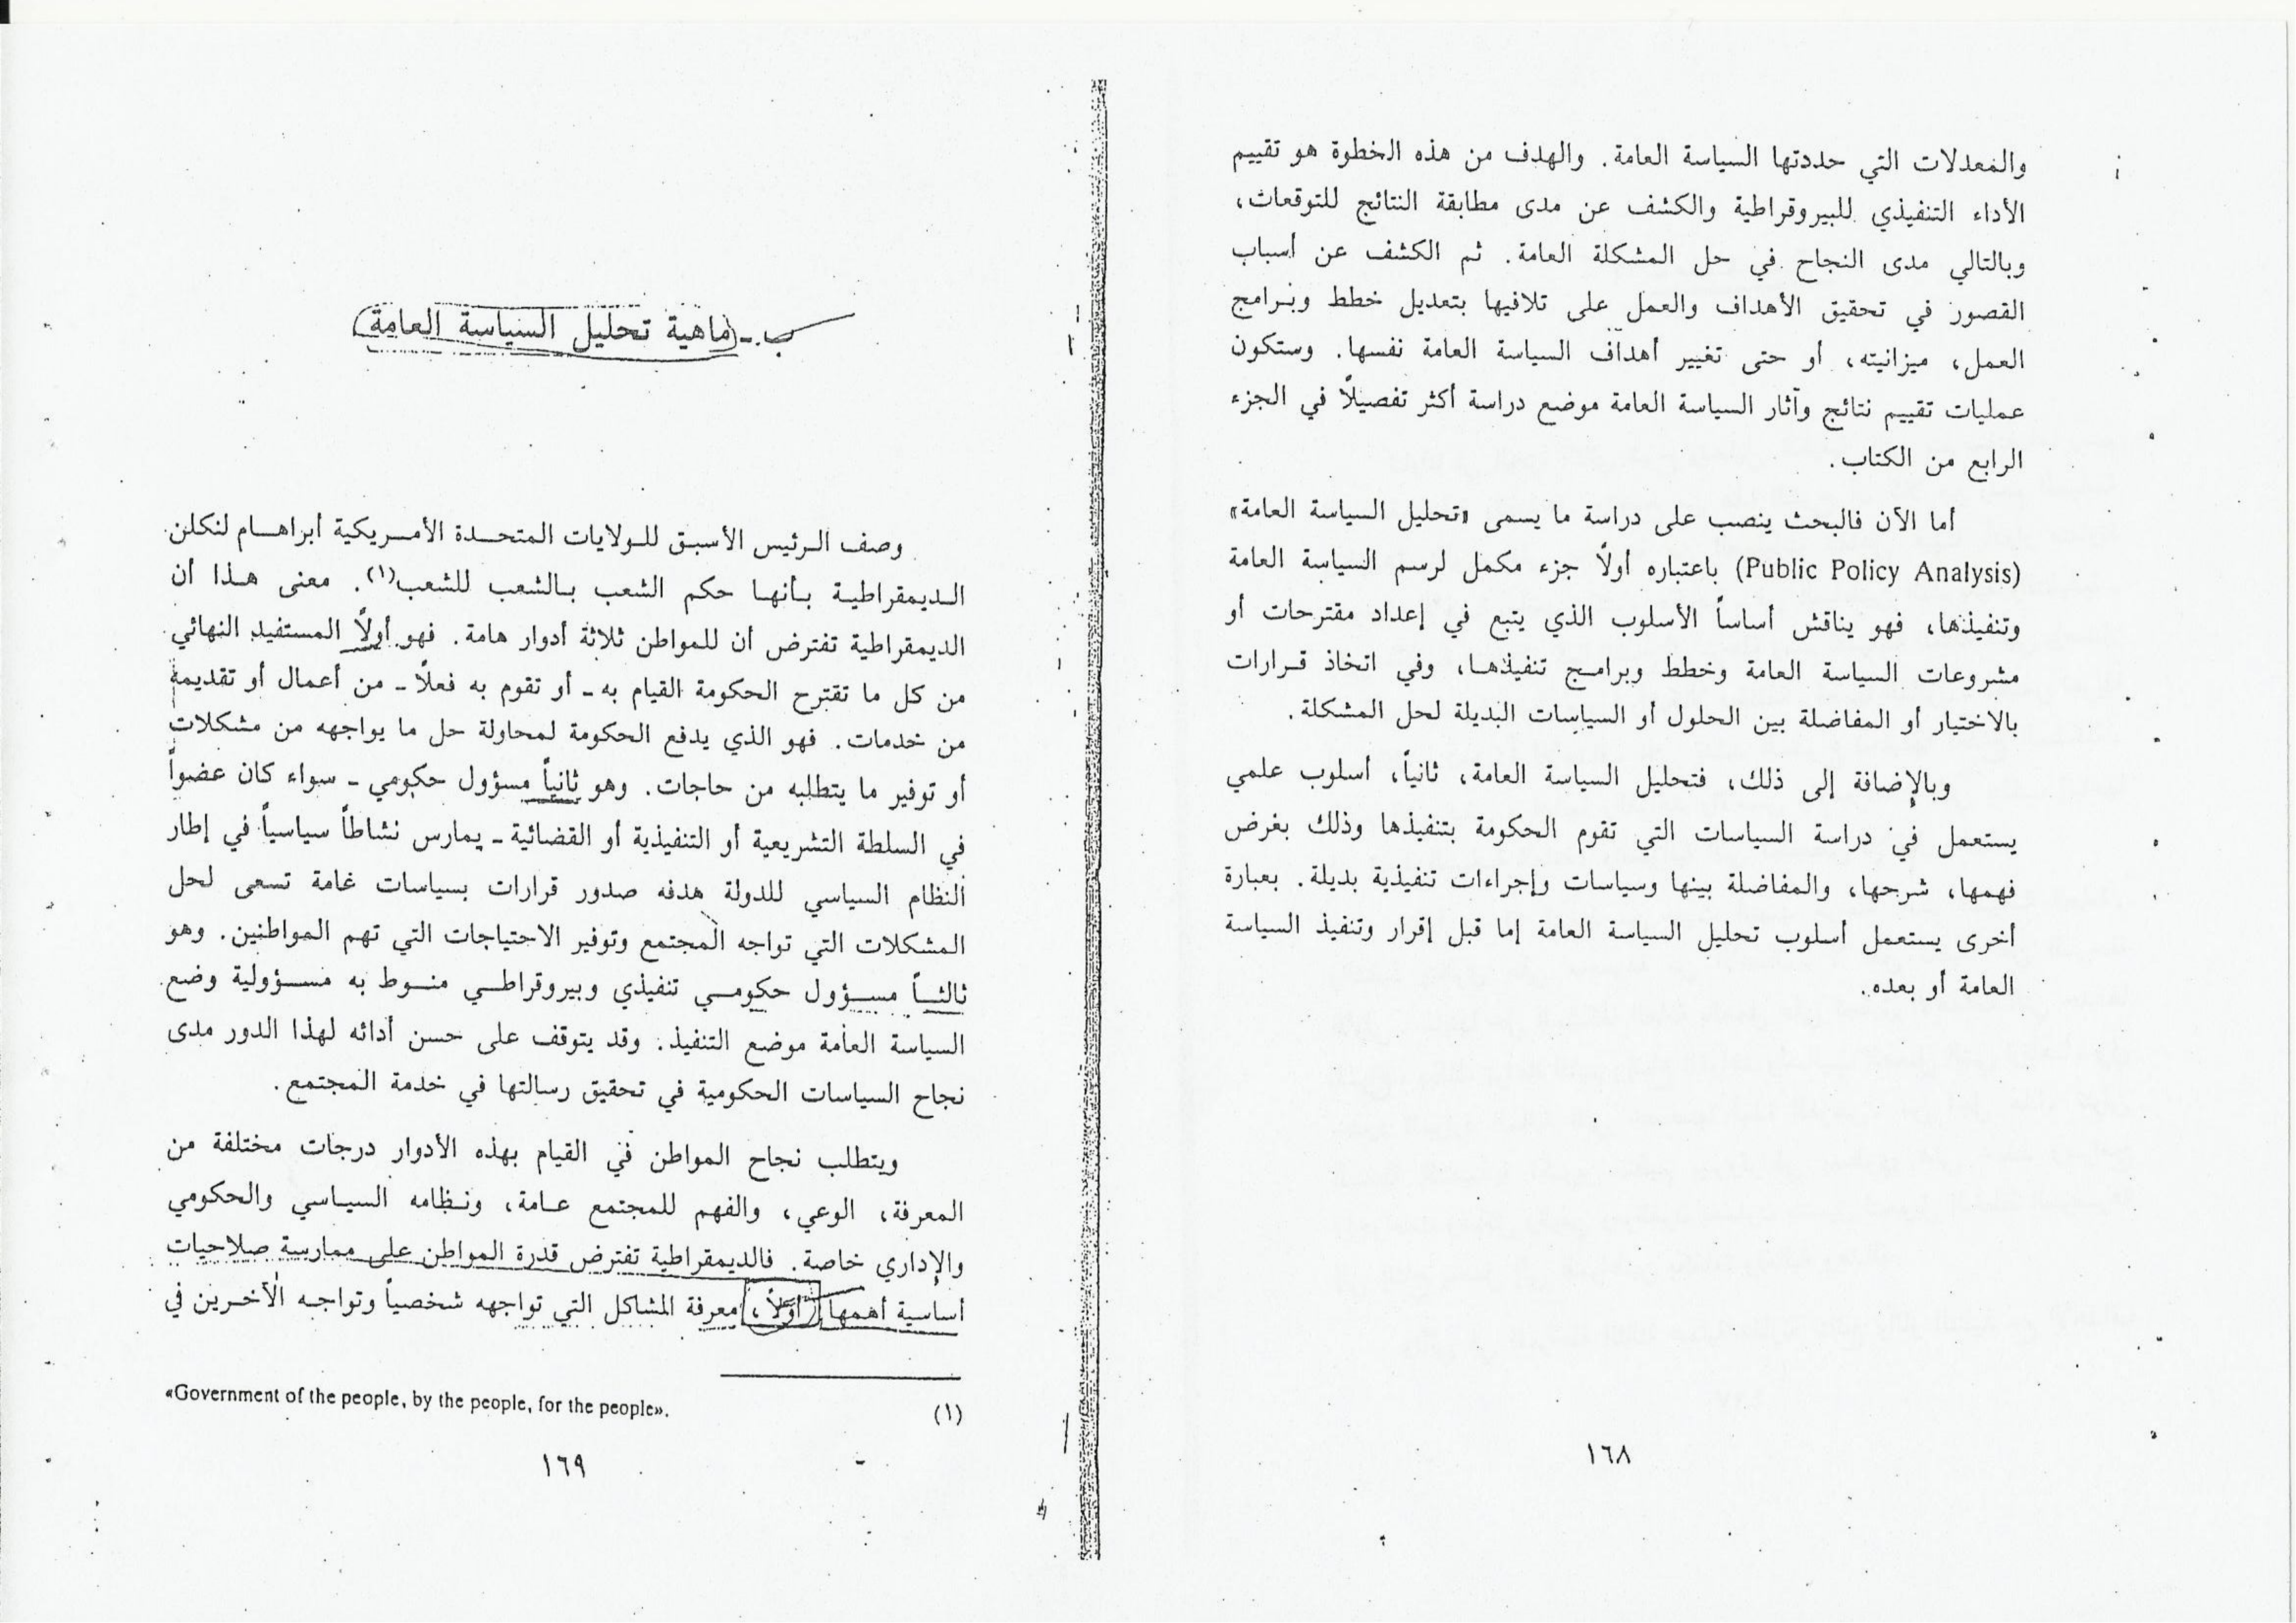 والمعدلات التي حددتها السياسة العامة. والهدف من هذه الخطوة هو تقييم
الأداء التنفيذي للبيروقراطية والكشف عن مدى مطابقة النتائج للتوقعات،
وبالتالي مدى النجاح في حل المشكلة العامة. ثم الكشف عن أسباب
القصور في تحقيق الأهداف والعمل على تلافيها بتعديل خطط وبرامج
العمل، ميزانيته، أو حتى تغيير أهداف السياسة العامة نفسها. وستكون
عمليات تقييم نتائج وآثار السياسة العامة موضع دراسة أكثر تفصيلاً في الجزء
الرابع من الكتاب.
أما الآن فالبحث ينصب على دراسة ما يسمى «تحليل السياسة العامة»
(Public Policy Analysis) باعتباره أولاً جزء مكمل لرسم السياسة العامة
وتنفيذها، فهو يناقش أساساً الأسلوب الذي يتبع في إعداد مقترحات أو
مشروعات السياسة العامة وخطط وبرامج تنفيذها، وفي اتخاذ قرارات
بالاختيار أو المفاضلة بين الحلول أو السياسات البديلة لحل المشكلة.
وبالإضافة إلى ذلك، فتحليل السياسة العامة، ثانياً، أسلوب علمي
يستعمل في دراسة السياسات التي تقوم الحكومة بتنفيذها وذلك بغرض
فهمها، شرحها، والمفاضلة بينها وسياسات وإجراءات تنفيذية بديلة. بعبارة
أخرى يستعمل أسلوب تحليل السياسة العامة إما قبل إقرار وتنفيذ السياسة
العامة أو بعده.
١٦٨
ب - ماهية تحليل السياسة العامة
وصف الرئيس الأسبق للولايات المتحدة الأمريكية أبراهام لنكلن
الديمقراطية بأنها حكم الشعب بالشعب للشعب(١). معنى هذا أن
الديمقراطية تفترض أن للمواطن ثلاثة أدوار هامة. فهو أولاً المستفيد النهائي
من كل ما تقترح الحكومة القيام به - أو تقوم به فعلاً - من أعمال أو تقديمه
من خدمات. فهو الذي يدفع الحكومة لمحاولة حل ما يواجهه من مشكلات
أو توفير ما يتطلبه من حاجات. وهو ثانياً مسؤول حكومي - سواء كان عضواً
في السلطة التشريعية أو التنفيذية أو القضائية - يمارس نشاطاً سياسياً في إطار
النظام السياسي للدولة هدفه صدور قرارات بسياسات عامة تسعى لحل
المشكلات التي تواجه المجتمع وتوفير الاحتياجات التي تهم المواطنين. وهو
ثالثاً مسؤول حكومي تنفيذي وبيروقراطي منوط به مسؤولية وضع
السياسة العامة موضع التنفيذ. وقد يتوقف على حسن أدائه لهذا الدور مدى
نجاح السياسات الحكومية في تحقيق رسالتها في خدمة المجتمع.
ويتطلب نجاح المواطن في القيام بهذه الأدوار درجات مختلفة من
المعرفة، الوعي، والفهم للمجتمع عامة، ونظامه السياسي والحكومي
والإداري خاصة. فالديمقراطية تفترض قدرة المواطن على ممارسة صلاحيات
أساسية أهمها أولاً، معرفة المشاكل التي تواجهه شخصياً وتواجه الأخرين في
(١) «Government of the people, by the people, for the people».
١٦٩